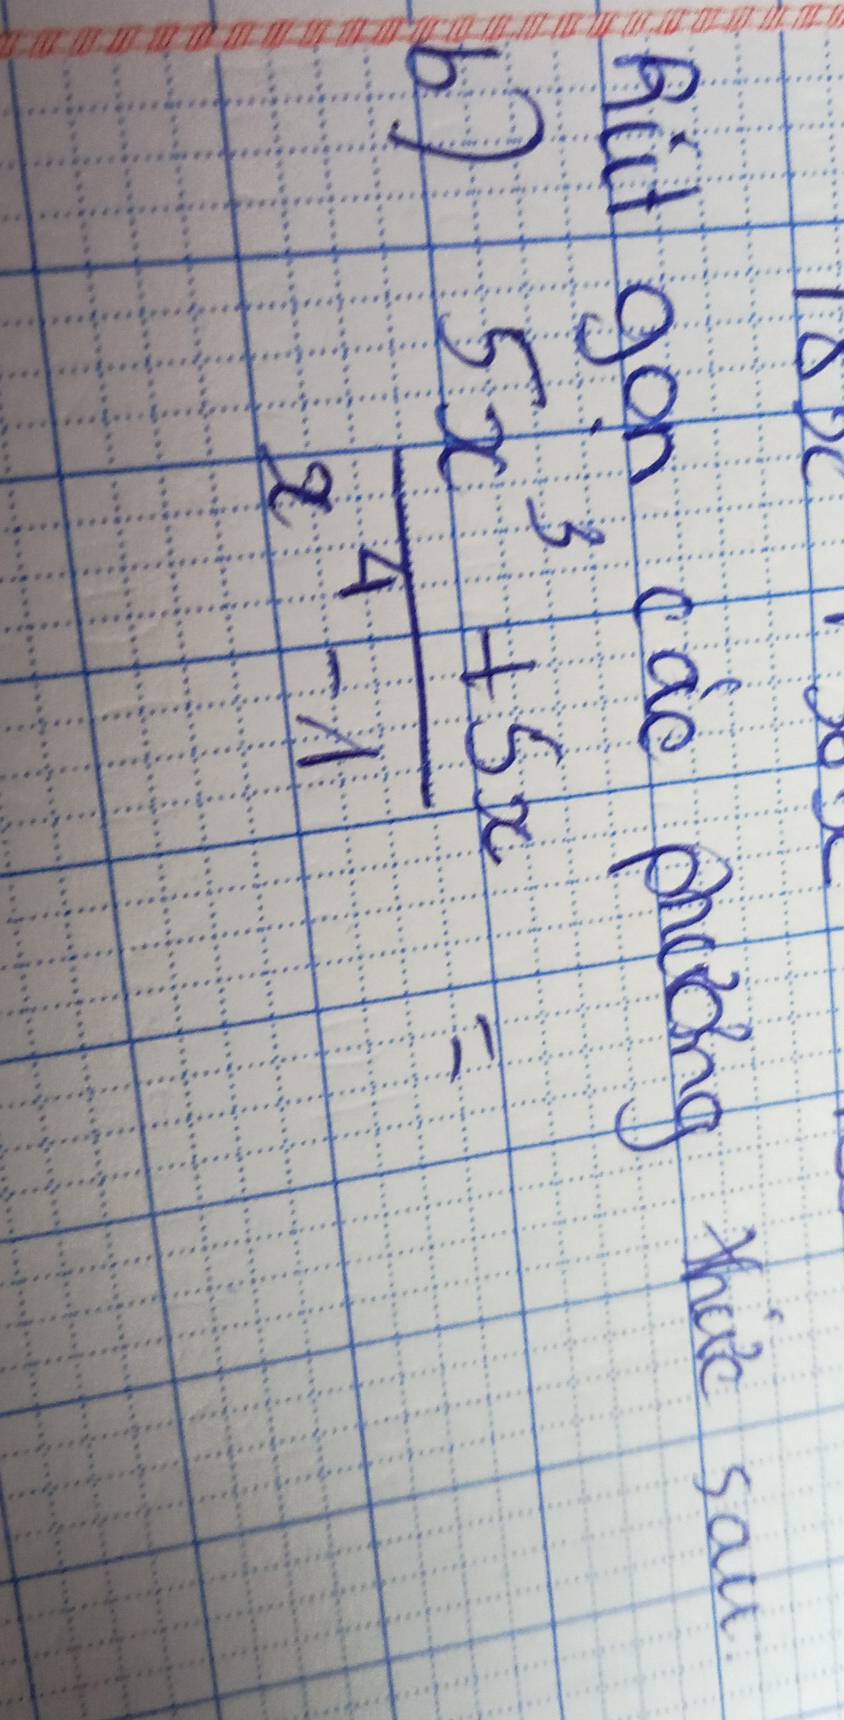 Rút gọn các phương thức sau
b) 5x³ + 5x =
x⁴ - 1